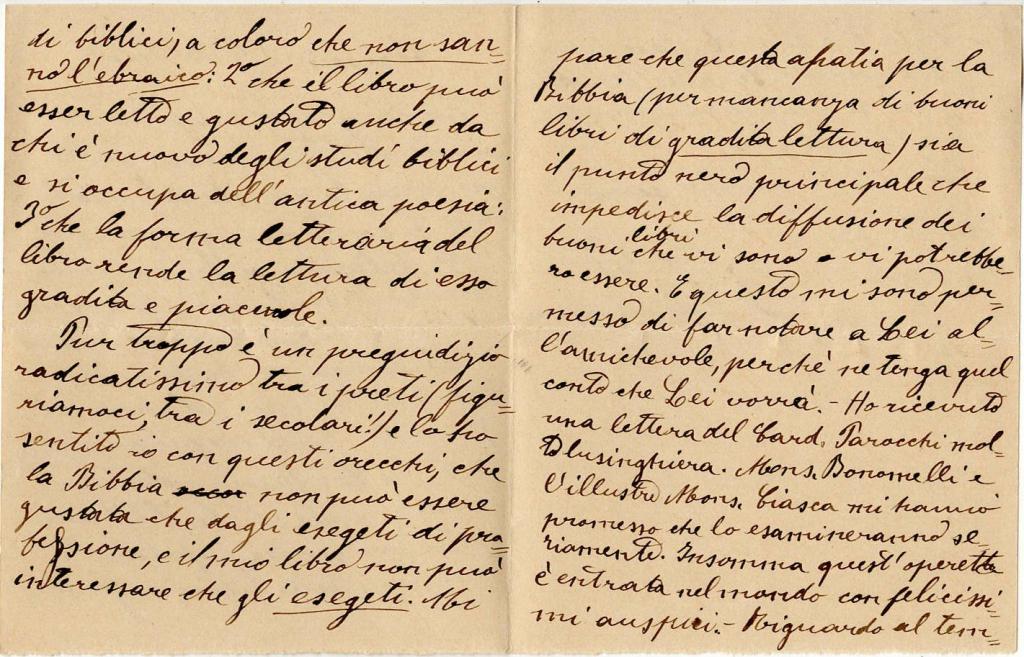 di biblici, a coloro che non san=
no l'ebraico: 2º che il libro può
esser letto e gustato anche da
chi è nuovo degli studi biblici
e si occupa dell'antica poesia:
3º che la forma letteraria del
libro rende la lettura di esso
gradita e piacevole.
Pur troppo è un pregiudizio
radicatissimo tra i preti (figu=
riamoci, tra i secolari!) e lo ho
sentito io con questi orecchi, che
la Bibbia non può essere
gustata che dagli esegeti di pro=
fessione, e il mio libro non può
interessare che gli esegeti. Mi
pare che questa apatia per la
Bibbia (per mancanza di buoni
libri di gradita lettura) sia
il punto nero principale che
impedisce la diffusione dei
buoni libri che vi sono o vi potrebbe=
ro essere. E questo mi sono per=
messo di far notare a Lei al=
l'amichevole, perchè ne tenga quel
conto che Lei vorrà. - Ho ricevuto
una lettera del Card. Parocchi mol=
to lusinghiera. Mons. Bonomelli e
l'illustre Mons. Ciasca mi hanno
promesso che lo esamineranno se=
riamente. Insomma quest'operetta
è entrata nel mondo con felicissi=
mi auspici. - Riguardo al tem=